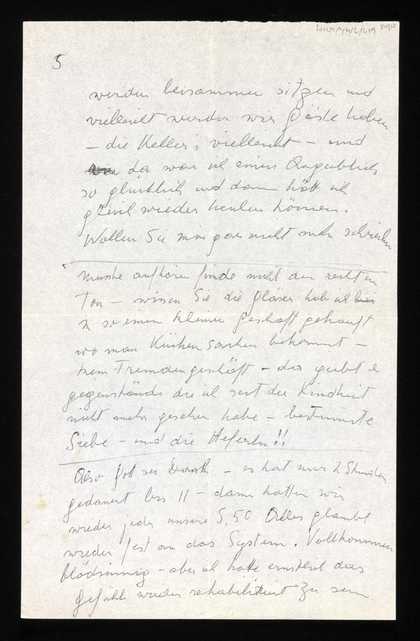 5
werden beisammen sitzen und
vielleicht werden wir Gäste haben
– die Keller's vielleicht – und
da war ich einen Augenblick
so glücklich und dann hätt ich
gleich wieder heulen können.
Wollen Sie mir gar nicht mehr schreiben
Musste aufhören finde nicht den rechten
Ton – wissen Sie die Gläser hab ich hier
in so einem kleinen Geschäft gekauft
wo man Küchensachen bekommt –
kein Fremdengeschäft – da giebt es
gegenstände die ich seit der Kindheit
nicht mehr gesehen habe – bestimmte
Siebe – und die Heferln!!
Also – es hat nur 2 Stunden
gedauert bis 11 – dann hatten wir
wieder jeder unsere 5,50 Alles glaubt
wieder fest an das System. Vollkommen
blödsinnig – aber ich hatte ernstlich das
Gefühl wieder rehabilitiert zu sein